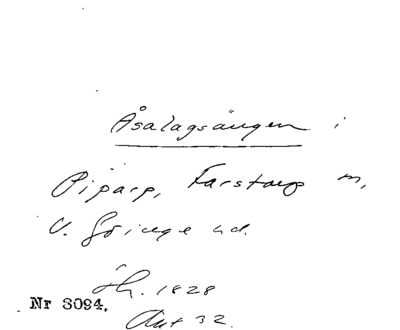 Åsalagsängen i
Pipārp, Farstorp m,
V. Göinge hd.
fh. 1828
Nr 3094.
Akt 32.